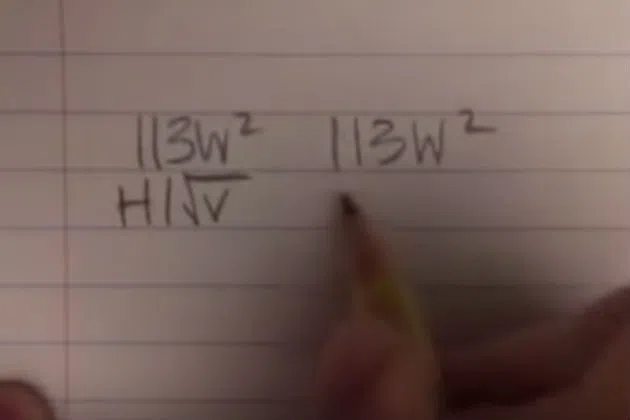 113W² 113W²
H1√V